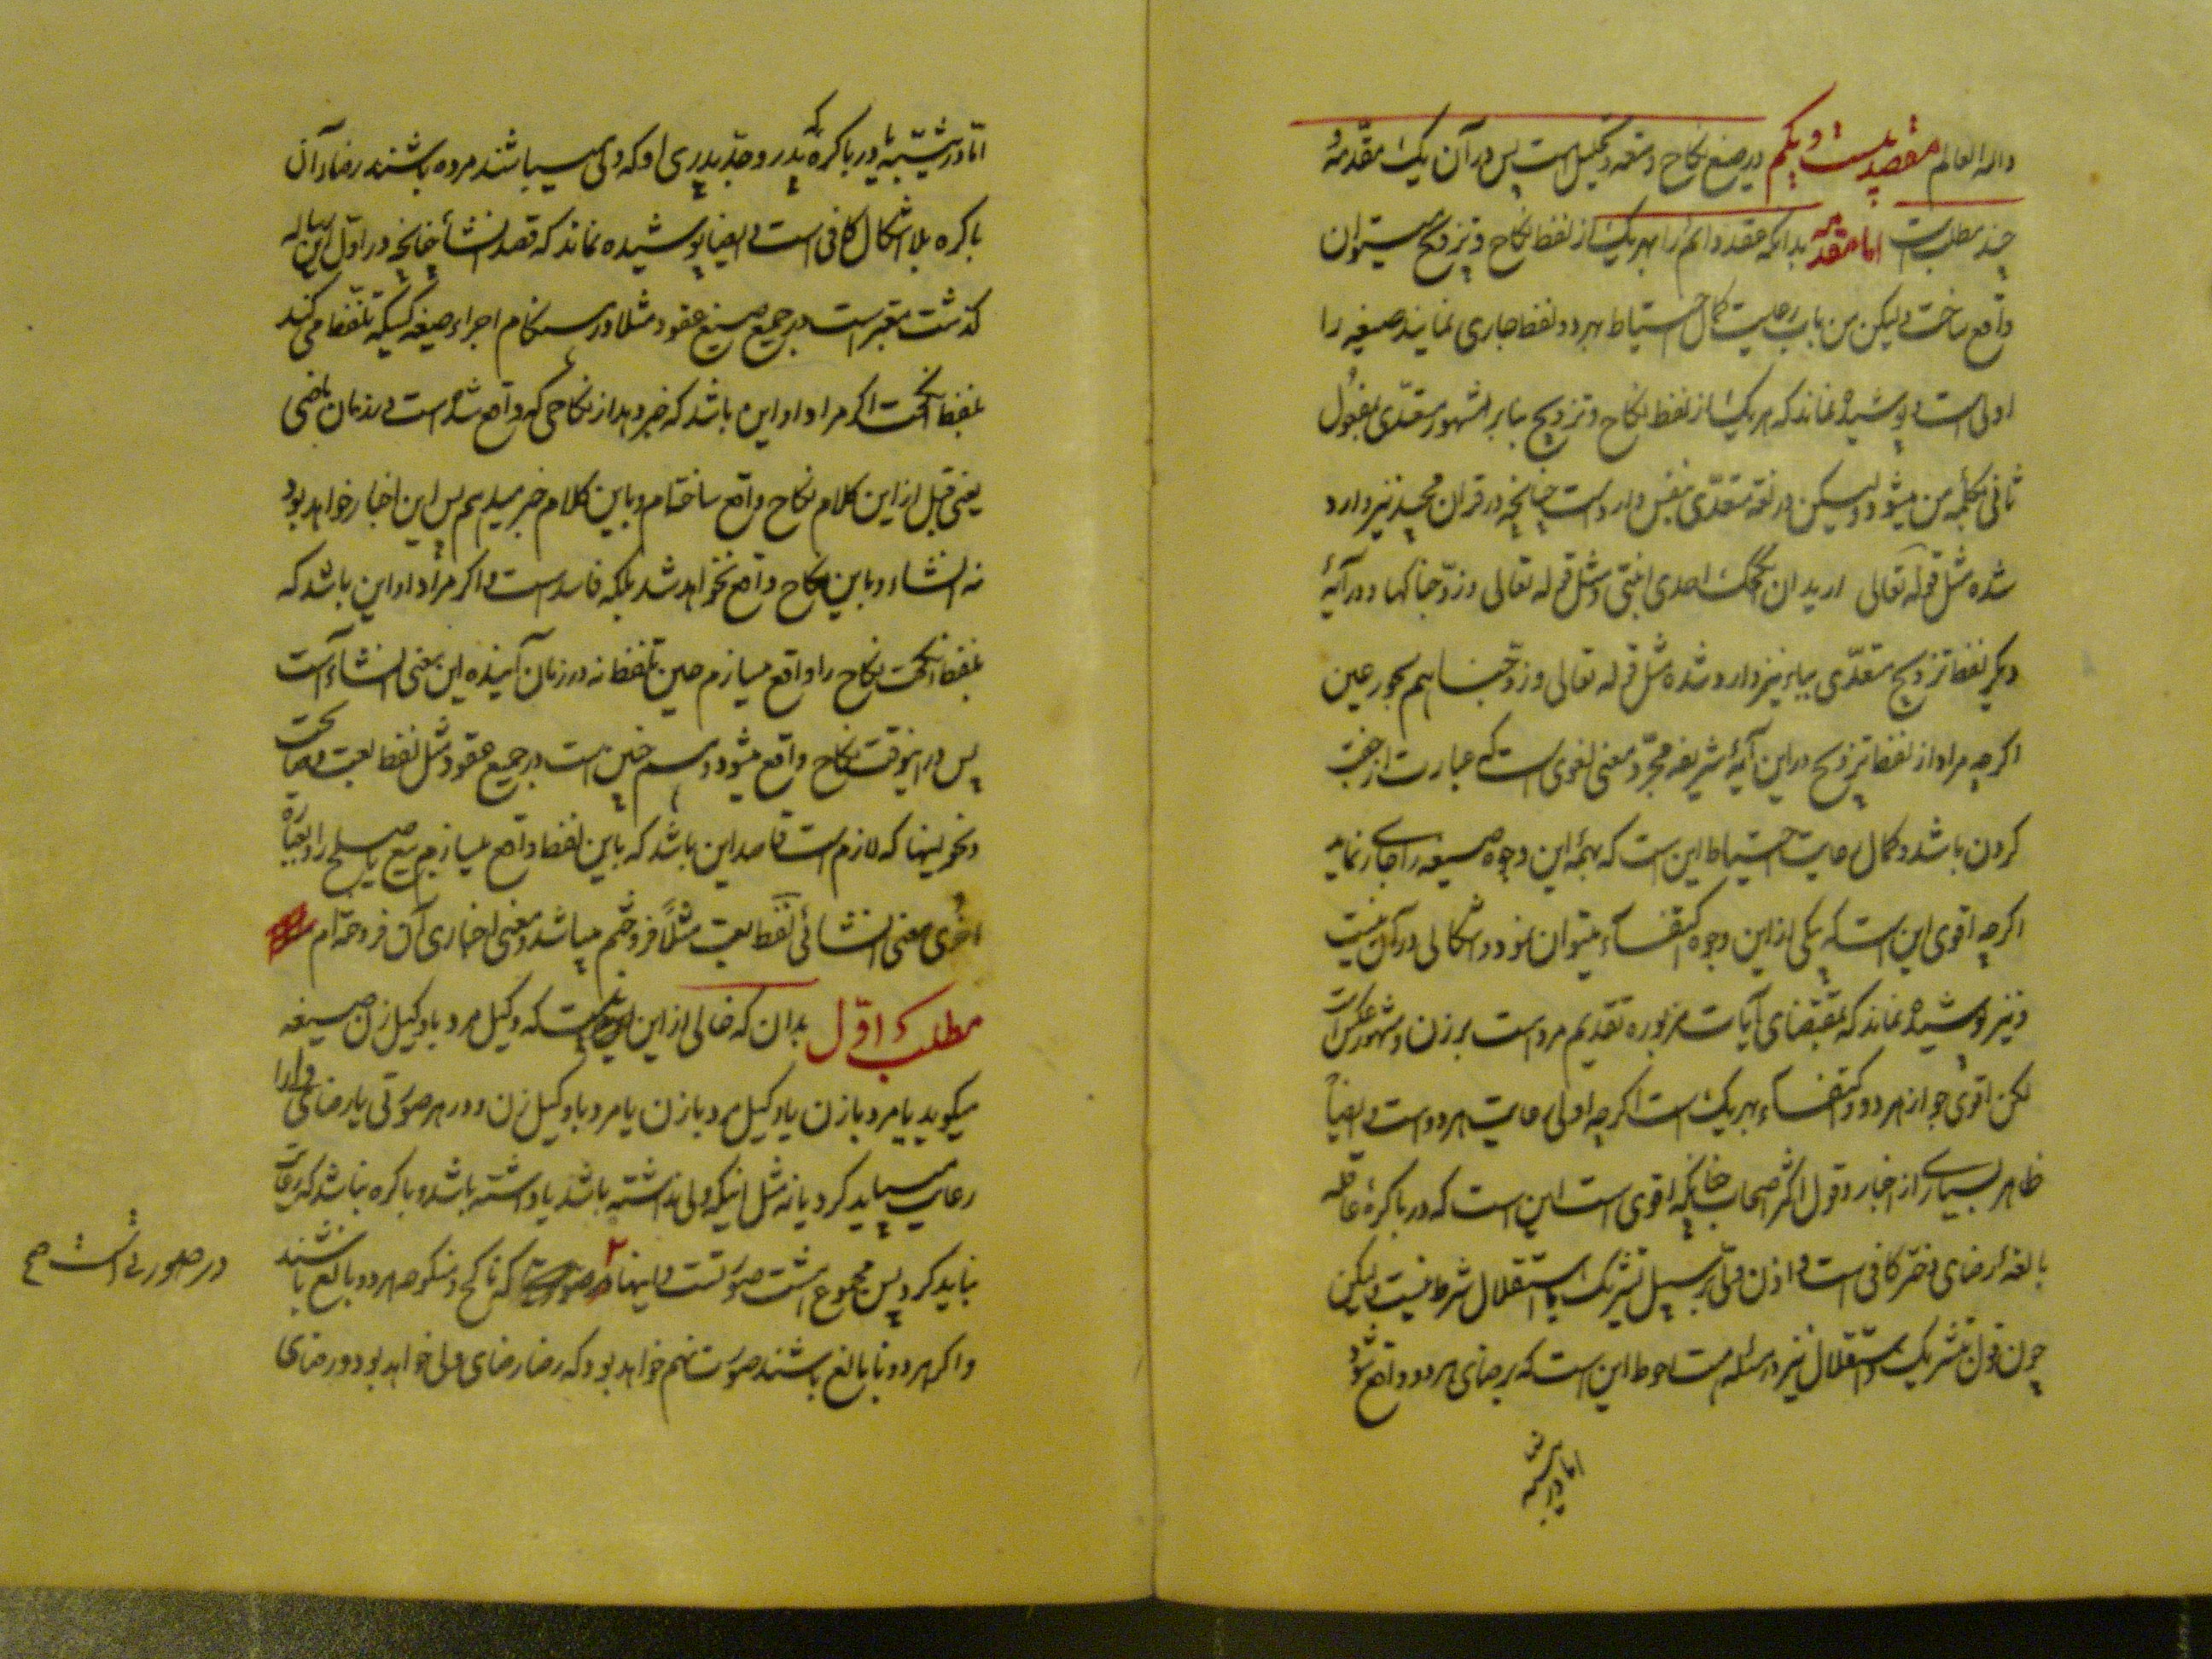 والله العالم مقصد بیست و یکم در صیغ نکاح و متعه و تحلیل است پس در آن یک مقدّمهٔ و
چند مطلب است امّا مقدّمه بدانکه عقد دوام را بهر یک از لفظ نکاح و تزویج میتوان
واقع ساخت ولیکن من باب رعایت کمال احتیاط بهر دو لفظ جاری نمایند صیغه را
اولی است و پوشیده نماند که هر یک از لفظ نکاح و تزویج بنابر مشهور متعدّی بمفعول
ثانی بکلمهٔ من میشود ولیکن در لغة متعدّی بنفس وارد است چنانچه در قرآن مجید نیز وارد
شده مثل قوله تعالی ارید ان انکحک احدی ابنتی و مثل قوله تعالی و زوّجناکها و در آیهٔ
دیگر لفظ تزویج متعدّی بباء نیز وارد شده مثل قوله تعالی و زوّجناهم بحور عین
اگرچه مراد از لفظ تزویج در این آیهٔ شریفه مجرّد معنی لغوی است که عبارت از جفت
کردن باشد و کمال رعایت احتیاط این است که بهمهٔ این وجوه صیغه را جاری نماید
اگرچه اقوی این است که بیکی از این وجوه اکتفاء میتوان نمود و اشکالی در آن نیست
و نیز پوشیده نماند که بمقتضای آیات مزبوره تقدیم مرد است بر زن و مشهور عکس است
لکن اقوی جواز هر دو و اکتفاء بهر یک است اگرچه اولی رعایت هر دو است و ایضاً
ظاهر بسیاری از اخبار و قول اکثر اصحاب چنانکه اقوی است این است که در باکرهٔ عاقلهٔ
بالغهٔ رضای دختر کافی است و اذن ولی بر سبیل تشریک یا استقلال شرط نیست ولیکن
چون قول تشریک و استقلال نیز در مسئله هست احوط این است که برضای هر دو واقع شود
امّا در ثیّبه
امّا در ثیّبه و در باکرهٔ که پدر و جدّ پدری او که ولی میباشند مرده باشند رضاء آن
باکره بلا اشکال کافی است و ایضا پوشیده نماند که قصد انشاء چنانچه در اوّل این رساله
گذشت معتبر است در جمیع صیغ عقود مثلا در هنگام اجراء صیغه کسیکه تلفّظ می کند
بلفظ انکحت اگر مراد او این باشد که خبر دهد از نکاحی که واقع شده است در زمان ماضی
یعنی قبل از این کلام نکاح واقع ساخته‌ام و باین کلام خبر میدهم پس این اخبار خواهد بود
نه انشاء و باین نکاح واقع نخواهد شد بلکه فاسد است و اگر مراد او این باشد که
بلفظ انکحت نکاح را واقع میسازم حین تلفّظ نه در زمان آینده این معنی انشاء است
پس در اینوقت نکاح واقع میشود و همچنین است در جمیع عقود مثل لفظ بعت و صالحت
و نحو اینها که لازم است قاصد این باشد که باین لفظ واقع میسازم بیع یا صلح را و بعبارة
اخری معنی انشائی لفظ بعت مثلاً فروختم میباشد و معنی اخباری آن فروخته‌ام
مطلب اوّل بدان که خالی از این نیست که وکیل مرد با وکیل زن صیغه
میگوید یا مرد با زن یا وکیل مرد با زن یا مرد با وکیل زن و در هر صورتی یا رضای ولی را
رعایت میباید کرد یا نه مثل اینکه ولی نداشته باشد یا داشته باشد و باکره نباشد که رعایت
نباید کرد پس مجموع هشت صورتست و اینها ۲ که ناکح و منکوحه هر دو بالغ باشند
در صورتی است صح
و اگر هر دو نابالغ باشند صورت نهم خواهد بود که رضا رضای ولی خواهد بود و رضای